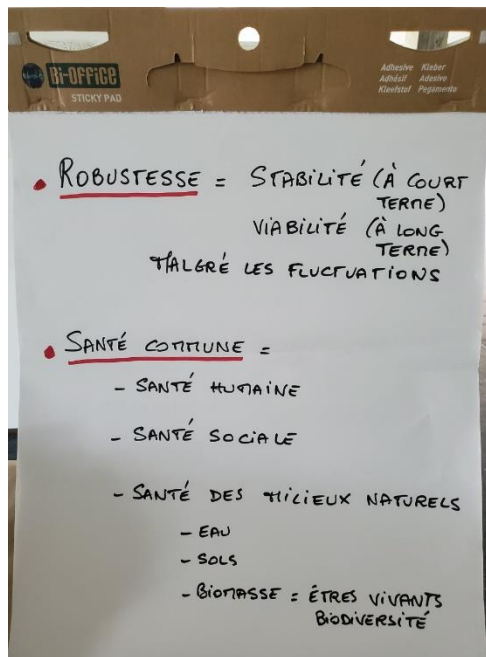 Bi-OFFiCE
STICKY PAD
Adhesive Kleber
Adhésif Adesivo
Kleefstof Pegamento
• ROBUSTESSE = STABILITÉ (À COURT
TERME)
VIABILITÉ (À LONG
TERME)
MALGRÉ LES FLUCTUATIONS
• SANTÉ COMMUNE =
- SANTÉ HUMAINE
- SANTÉ SOCIALE
- SANTÉ DES MILIEUX NATURELS
- EAU
- SOLS
- BIOMASSE = ÊTRES VIVANTS
BIODIVERSITÉ